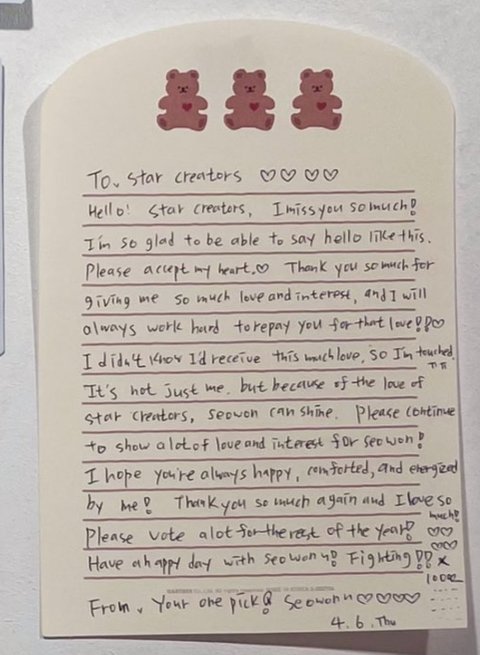 To. star creators ♡♡♡♡
Hello! star creators, I miss you so much!
I'm so glad to be able to say hello like this.
Please accept my heart.♡ Thank you so much for
giving me so much love and interest, and I will
always work hard to repay you for that love!!♡
I didn't know I'd receive this much love, so I'm touched.
ㅠㅠ
It's not just me. but because of the love of
star creators, seowon can shine. Please continue
to show a lot of love and interest for seowon!
I hope you're always happy, comforted, and energized
by me! Thank you so much again and I love so
much!
Please vote a lot for the rest of the year! ♡♡
♡♡
Have a happy day with seowonu! Fighting!! x
1000
From. Your one pick! seowonu♡♡♡♡
4. 6. Thu